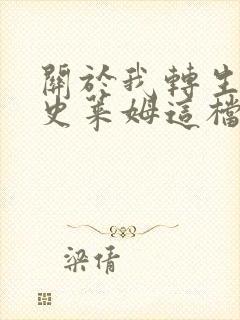 關於我轉生
史萊姆這檔
梁倩